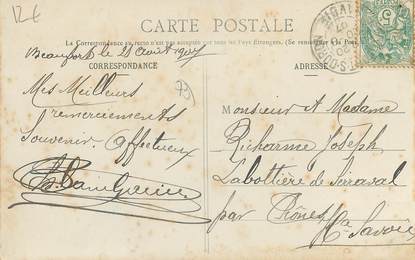 12€
CARTE POSTALE
La Correspondance au recto n'est pas acceptée par tous les Pays Étrangers. (Se renseigner à la Poste)
CORRESPONDANCE
ADRESSE
Beaufort le 21 Août 1907
Mes Meilleurs
remerciements
Souvenir affectueux
Monsieur et Madame
Richarme Joseph
Labottière de Serraval
par Thônes
Hte Savoie